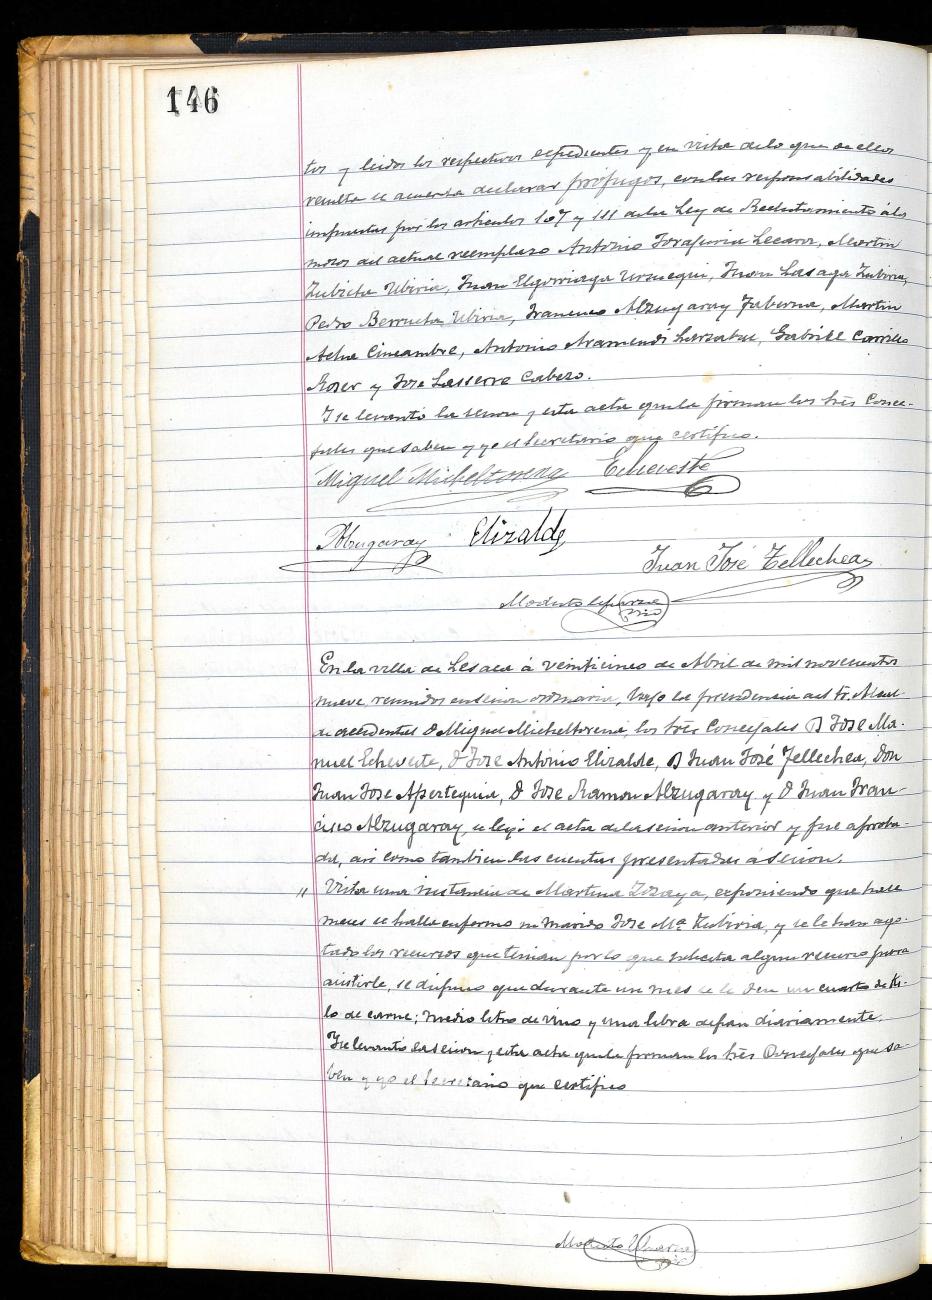 146
tos y leidos los respectivos expedientes y en vista de lo que de ellos
resulta se acuerda declarar prófugos, con las responsabilidades
impuestas por los artículos 107 y 111 de la Ley de Reclutamiento á los
mozos del actual reemplazo Antonio Lecaroz, Martin
Zubieta Ubiria, Juan Elgorriaga, Juan Lasaga Zubiria,
Pedro Berrueta Ubiria, Francisco Alzugaray Taberna, Martin
Acha, Antonio Aramendi Larzabal, Gabriel Carrillo
Roser y Jose Lasserre Cabezo.
Y se levantó la sesion y esta acta que la firman los tres Conce-
jales que saben y yo el Secretario que certifico.
Miguel Micheltorena Echeveste
Alzugaray Elizalde
Juan José Tellechea
Modesto
En la villa de Lesaca á veinticinco de Abril de mil novecientos
nueve reunidos en sesion ordinaria, bajo la presidencia del Sr. Alcal-
de accidental D Miguel Micheltorena, los tres Concejales D Jose Ma-
nuel Echeveste, D Jose Antonio Elizalde, D Juan José Tellechea, Don
Juan Jose Apesteguia, D Jose Ramon Alzugaray y D Juan Fran-
cisco Alzugaray, se leyó el acta de la sesion anterior y fue aproba-
da, asi como tambien las cuentas presentadas á sesion.
" Vista una instancia de Martina Zozaya, exponiendo que hace
meses se halla enfermo su marido Jose Mª Zubiria, y se le han ago-
tado los recursos que tenian por lo que solicita algun recurso para
asistirle, se dispuso que durante un mes se le den un cuarto de Ki-
lo de carne; medio litro de vino y una libra de pan diariamente.
Y se levantó la sesion y esta acta que la firman los tres Concejales que sa-
ben y yo el Secretario que certifico
Modesto